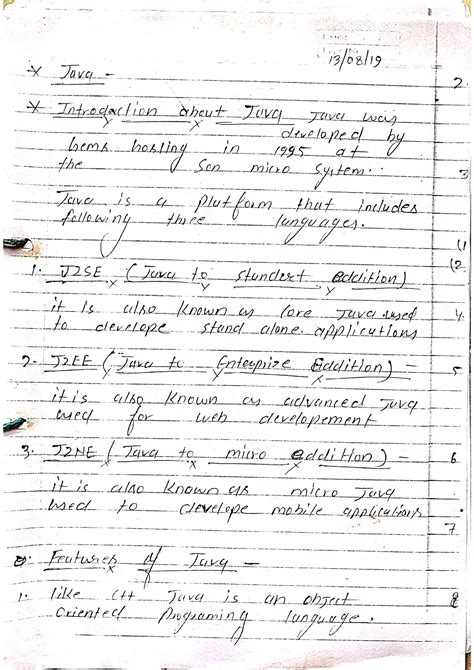 13/08/19
* Java -
2.
* Introdaction about Java Java was
developed by
hems hosling in 1995 at
the Son micro system..
3
Java is a platform that includes
following three languages.
(1
(2
1. J2SE (Java to standert eddition)
it Is also known as Core Java used
4.
to develope stand alone applications
2. J2EE (Java to Enteeprize Eddition) -
5
it is also known as advanced Java
used for web developement
3. J2NE (Java to micro eddition) -
6
it is also known as micro Java
used to develope mobile applications
7
Features of Java -
1. like C++ Java is an object
8
Oriented programing language.